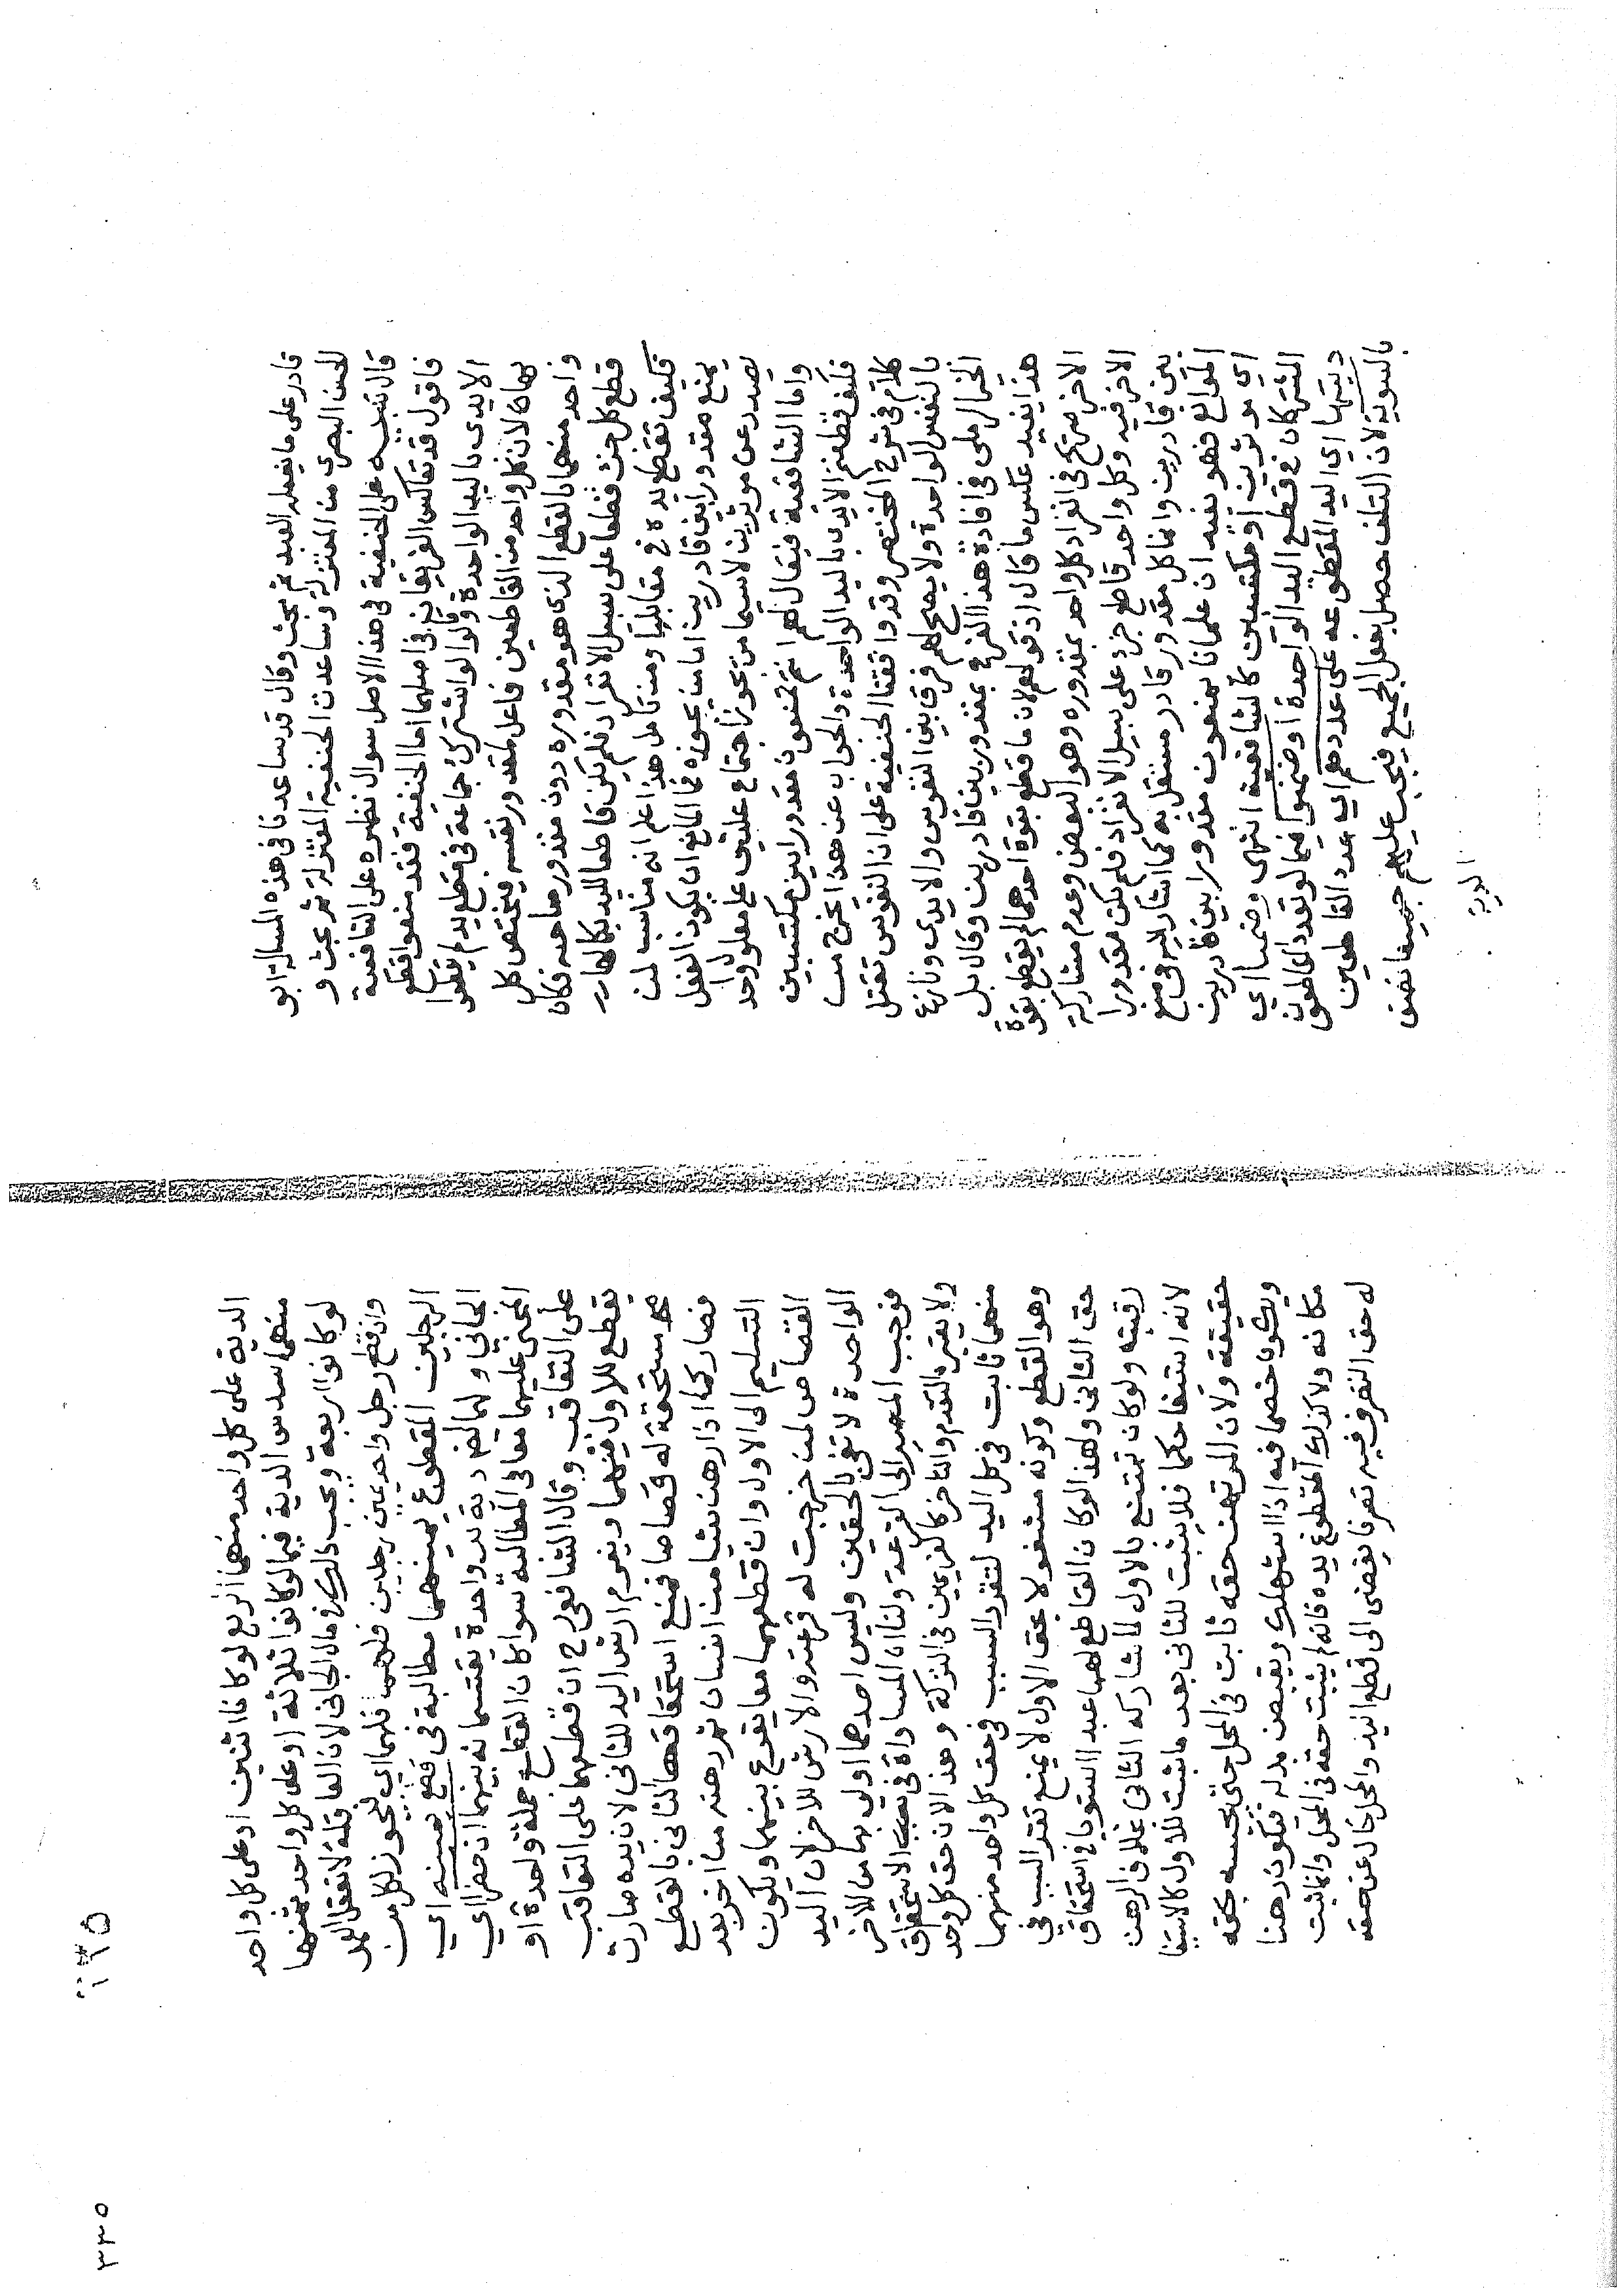 قادر على ما يفعله العبد ثم بحث وقال قد ساعدنا في هذه المسالة ابو
الحسن البصري من المعتزلة وساعدت الحنفية المعتزلة ثم بحث و
قال تنبيه على الحنفية في هذا الاصل سوال نظره على الشافعية
فاقول قد تعاكس الفريقان في اصلهما اما الحنفية فقد منعوا قطع
الايدي باليد الواحدة وقالوا لو اشترك جماعة في قطع يد لم يقطعوا
بها كان لان كل واحد من القاطعين فاعل لمقدور نفسه فيختص كل
واحد منهما بالقطع الذي هو مقدوره دون مقدور صاحبه فكان
قطع كل جزء قطعا على سبيل الانفراد فلم يكن قاطعا لليد بكمالها
فكيف تقطع يده في مقابلها ومن تامل هذا علم انه مناسب لمن
يمنع مقدورا بين قادرين اما من يجوزه فما المانع ان يكون الفعل
يصدر عن موثرين لاسيما من يجوز اجتماع علتين على معلول واحد
واما الشافعية فيقال لهم انتم تمنعون مقدورا بين مكتسبين
فكيف قطعتم الايدي باليد الواحدة والجواب عن هذا يخرج من
كلام في شرح المختصر وقد وافقتنا الحنفية على ان النفوس تقتل
بالنفس الواحدة ولا يصح لهم فرق بين النفوس والايدي ونازع
الخيالي ملى في افادة هذا الفرع بمقدور بين قادرين وقال بل
هذا يفيد عكس ما قال اذ قولهم لان ما قطع بقوة احدهما لم يقطع بقوة
الاخر صريح في انفراد كل واحد بمقدوره وهو البعض وعدم مشاركة
الاخر فيه وكل واحد قاطع جزء على سبيل الانفراد فلم يكن مقدورا
بين قادرين وانما كل مقدور قادر مستقل به كما اشار اليه في منع
الموانع فهو يفيد ان علمانا يمنعون مقدورا بين قادرين
اي موثرين او مكتسبين كالشافعية انتهى وضمنا اي
الشريكان في قطع اليد الواحدة او ضمنوا فيما لو تعدد القاطعون
ديتها اي اليد المقطوعه على عددهم اي عدد القاطعين
بالسوية لان التلف حصل بفعل الجميع فيجب عليهم جميعا نصف
الدية
٣٣٥
الدية على كل واحد منهما الربع لو كانا اثنين او على كل واحد
منهما سدس الدية فيما لو كانوا ثلاثة او على كل واحد ثمنها
لو كانوا اربعة ويجب ذلك في مال الجاني لان العاقلة لا تعقل العمد
وان قطع رجل واحد يمين رجلين فلهما فلهما اي فيجوز لكل من
الرجلين المقطوع يمينهما مطالبة في قطع يمينه اي
الجاني ولهما ايضا دية يد واحدة يقتسمانه بينهما ان حضرا اي
المجني عليهما معا في المطالبة سوا كان القطع جملة واحدة او
على التعاقب وقال الشافعي رح ان قطعهما على التعاقب
يقطع للاول منهما ويغرم ارش اليد للثاني لان يده صارت
مستحقة له قصاصا فمنع استحقاقها للثاني بالقطع
فصار كما اذا رهن شيا من انسان ثم رهنه من اخر بعد
التسليم الى الاول وان قطعهما معا يقرع بينهما ويكون
القصاص لمن خرجت له قرعته والارش للاخر لان اليد
الواحدة لا تفي بالحقين وليس احدهما اولى بها من الاخر
فوجب المصير الى القرعة ولنا ان المساواة في سبب الاستحقاق
ولا يعتبر بالتقدم والتاخر كالغريمين في التركة وهذا لان حق كل واحد
منهما ثابت في كل اليد لتقرر السبب في حق كل واحد منهما
وهو القطع وكونه مشغولا بحق الاول لا يمنع تقرر السبب في
حق الثاني ولهذا لو كان القاطع لهما عبدا استويا في استحقاق
رقبته ولو كان تمتنع بالاول لما شاركه الثاني بخلاف الرهن
لانه استيفا حكما فلا يثبت للثاني بعد ما ثبت للاول كالاستيفا
حقيقة ولان المرتهن حقه ثابت في المحل حتى يحبسه بحقه
ويكون خصما فيه اذا استهلك ويقبض بدله فيكون رهنا
مكانه ولا كذلك المقطوع يده فانه لم يثبت حقه في المحل وانما ثبت
له حق التصرف فيه تصرفا يفضي الى قطع اليد والمحل خال عن حقه